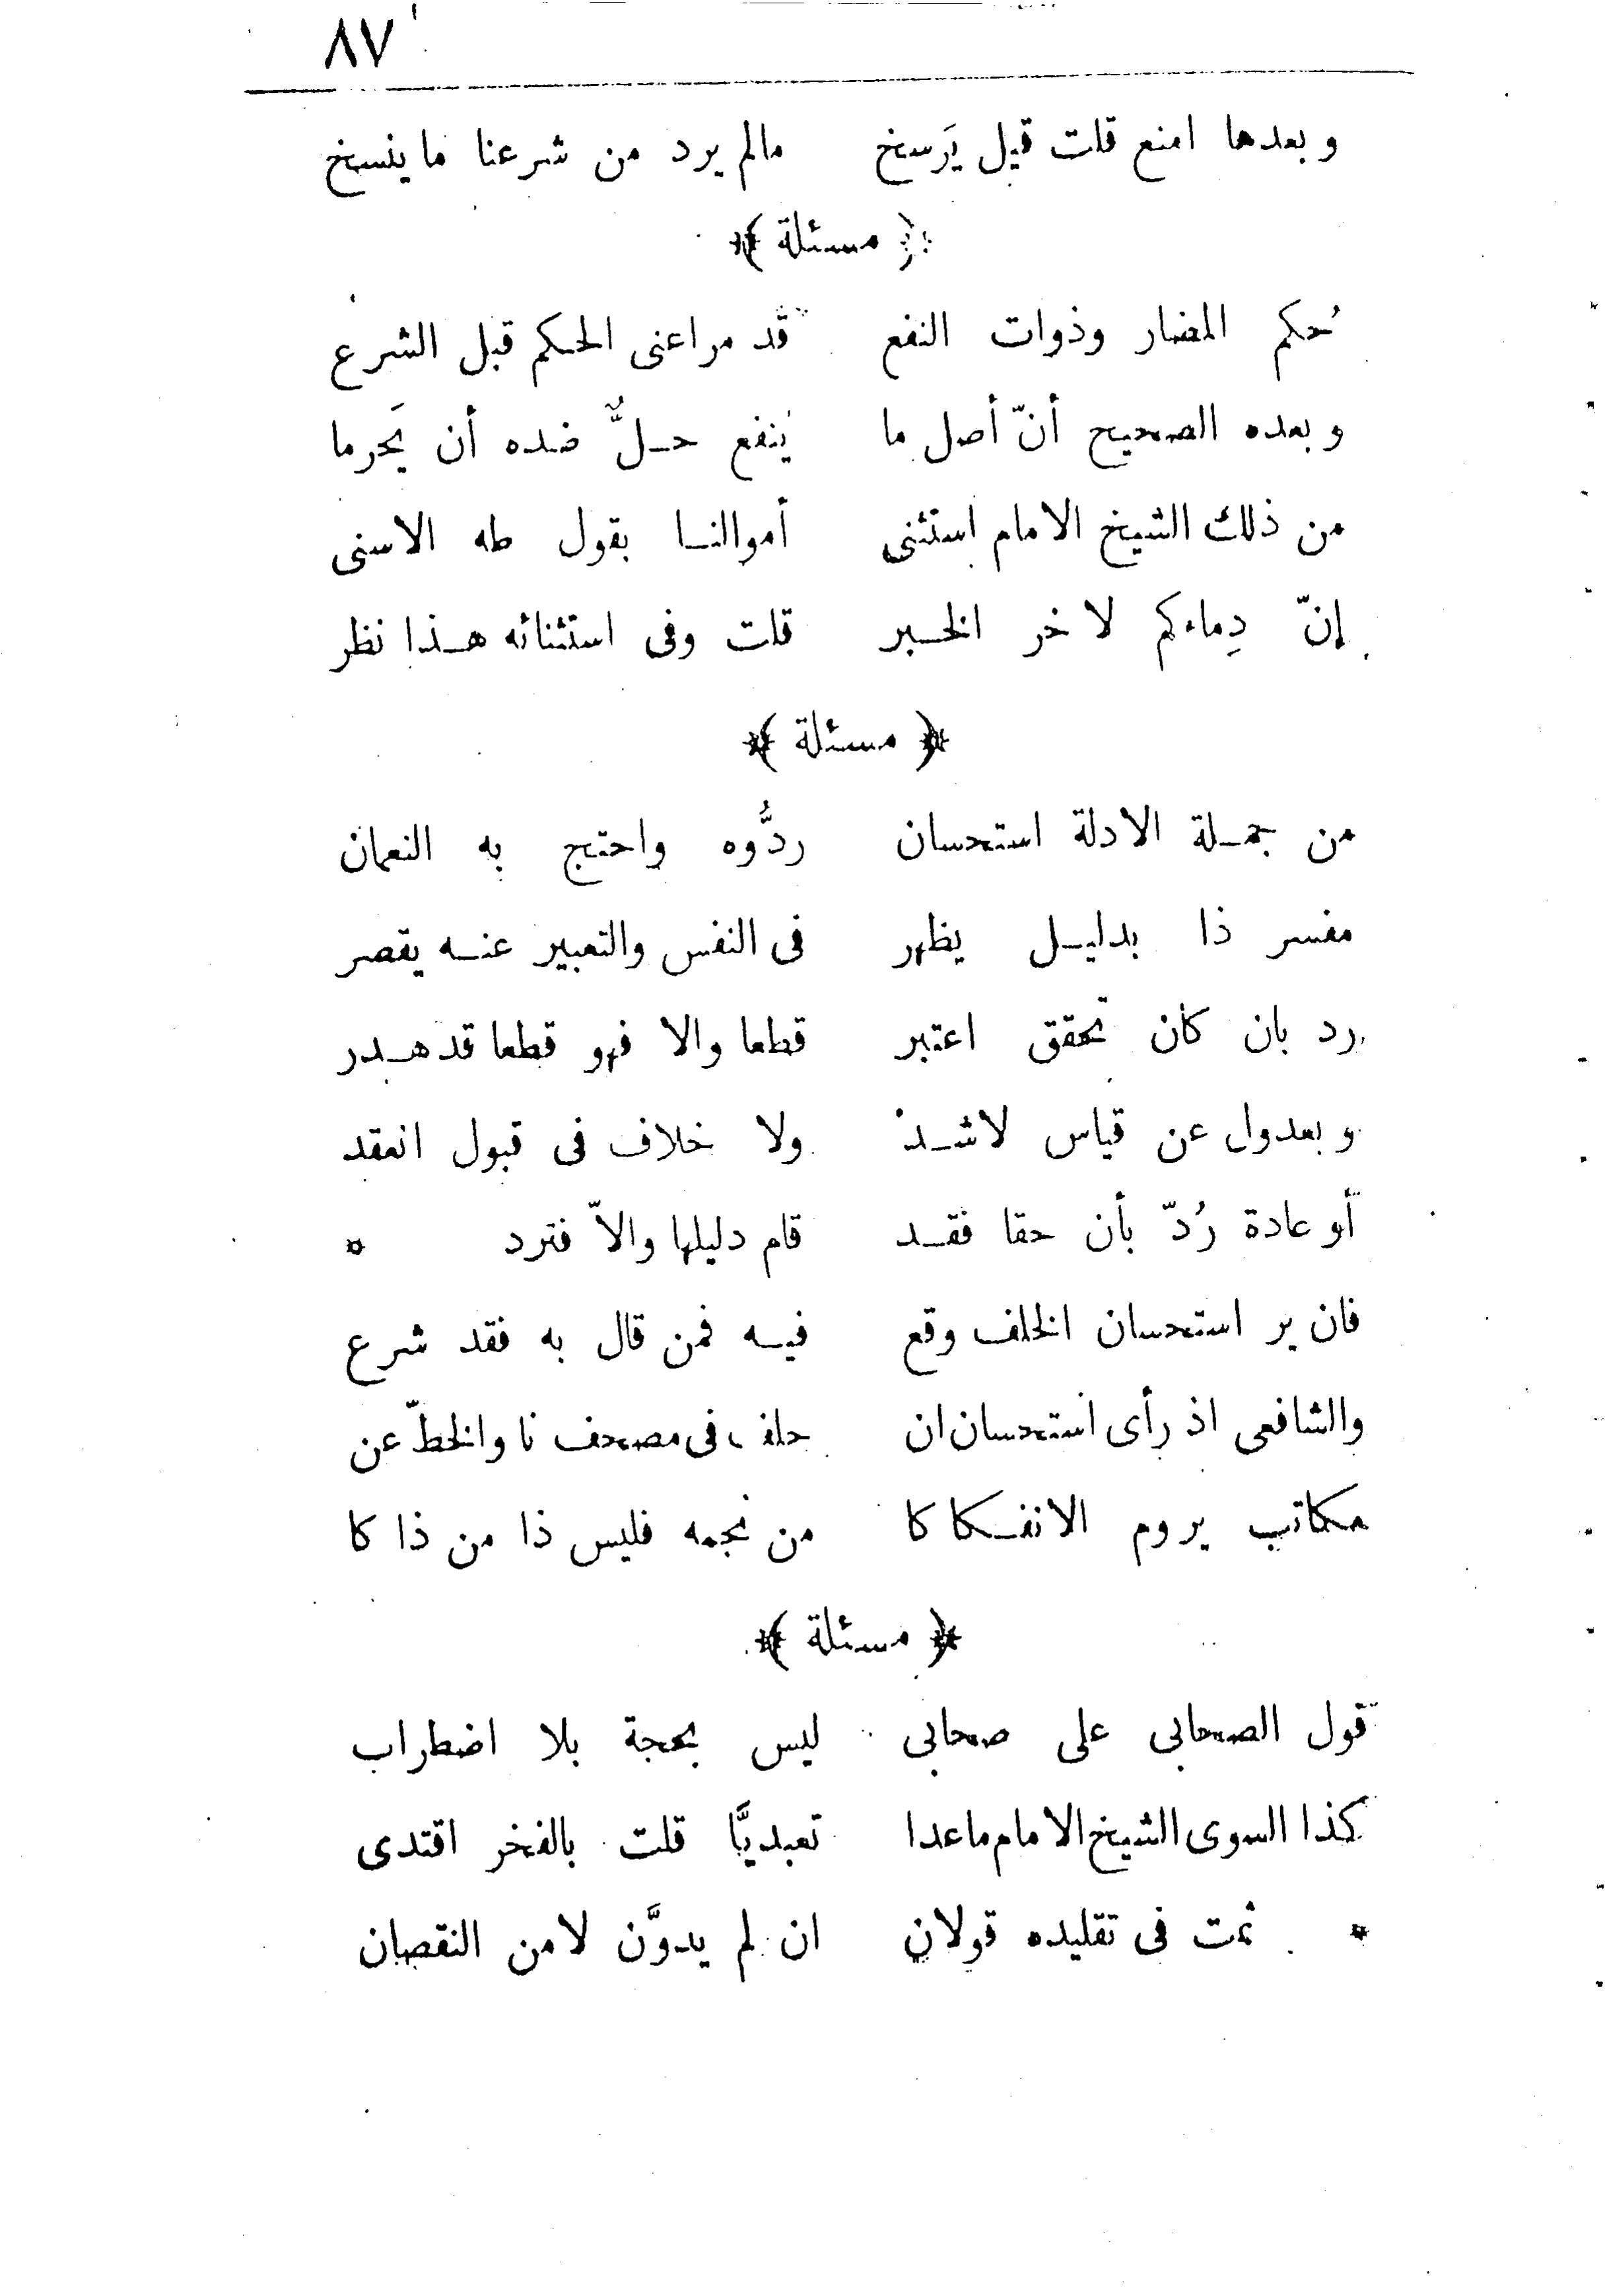 ٨٧
وبعدها امنع قلت قيل يَرسخ مالم يرد من شرعنا ما ينسخ
﴿ مسئلة ﴾
حُكم المضار وذوات النفع قد مر اعنى الحكم قبل الشرع
وبعده الصحيح أنّ أصل ما يَنفع حلٌّ ضده أن يَحرما
من ذلك الشيخ الامام استثنى أموالنا بقول طه الاسنى
إنّ دِماءكم لاخر الخبر قلت وفى استثنائه هذا نظر
﴿ مسئلة ﴾
من جملة الادلة استحسان ردُّوه واحتج به النعمان
مفسر ذا بدليل يظهر فى النفس والتعبير عنه يقصر
رد بان كان تحقق اعتبر قطعا والا فهو قطعا قد هدر
وبعدول عن قياس لاشد ولا خلاف فى قبول انعقد
أو عادة رُدّ بأن حقا فقد قام دليلها والاّ فترد *
فان ير استحسان الخلف وقع فيه فمن قال به فقد شرع
والشافعى اذ رأى استحسان ان حلف فى مصحف نا والخطّ عن
مكاتب يروم الانفكاكا من نجمه فليس ذا من ذا كا
﴿ مسئلة ﴾
قول الصحابى على صحابى ليس بحجة بلا اضطراب
كذا السوى الشيخ الامام ماعدا تعبديًّا قلت بالفخر اقتدى
* ثمت فى تقليده قولان ان لم يدوَّن لا من النقصان